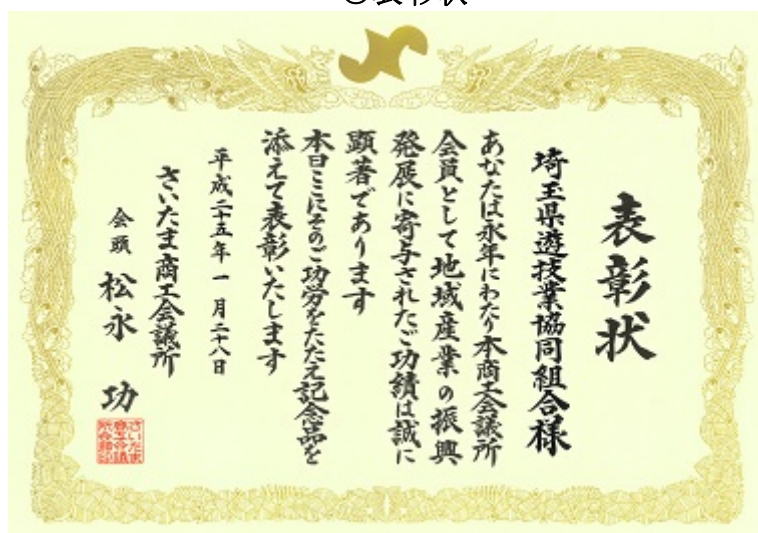 〇表彰状
表彰状
埼玉県遊技業協同組合様
あなたは永年にわたり本商工会議所
会員として地域産業の振興
発展に寄与されたご功績は誠に
顕著であります
本日ここにそのご功労をたたえ記念品を
添えて表彰いたします
平成二十五年一月二十八日
さいたま商工会議所
会頭 松永 功